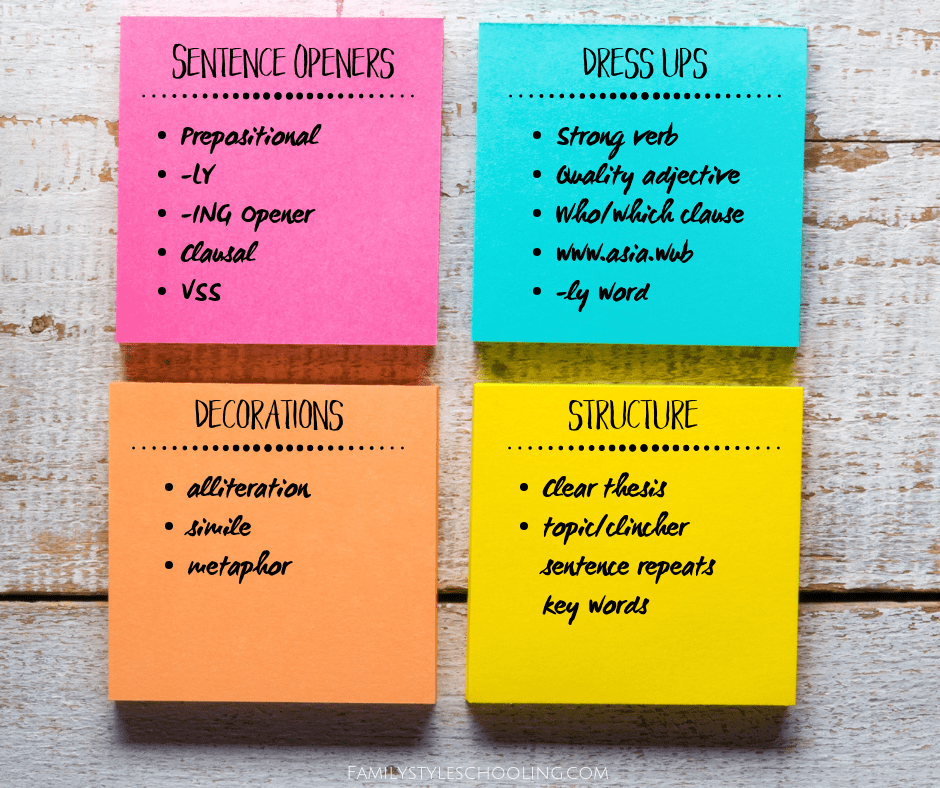 SENTENCE OPENERS
• Prepositional
• -LY
• -ING Opener
• Clausal
• VSS
DRESS UPS
• Strong verb
• Quality adjective
• Who/which clause
• www.asia.wub
• -ly word
DECORATIONS
• alliteration
• simile
• metaphor
STRUCTURE
• Clear thesis
• topic/clincher
sentence repeats
key words
FAMILYSTYLESCHOOLING.COM